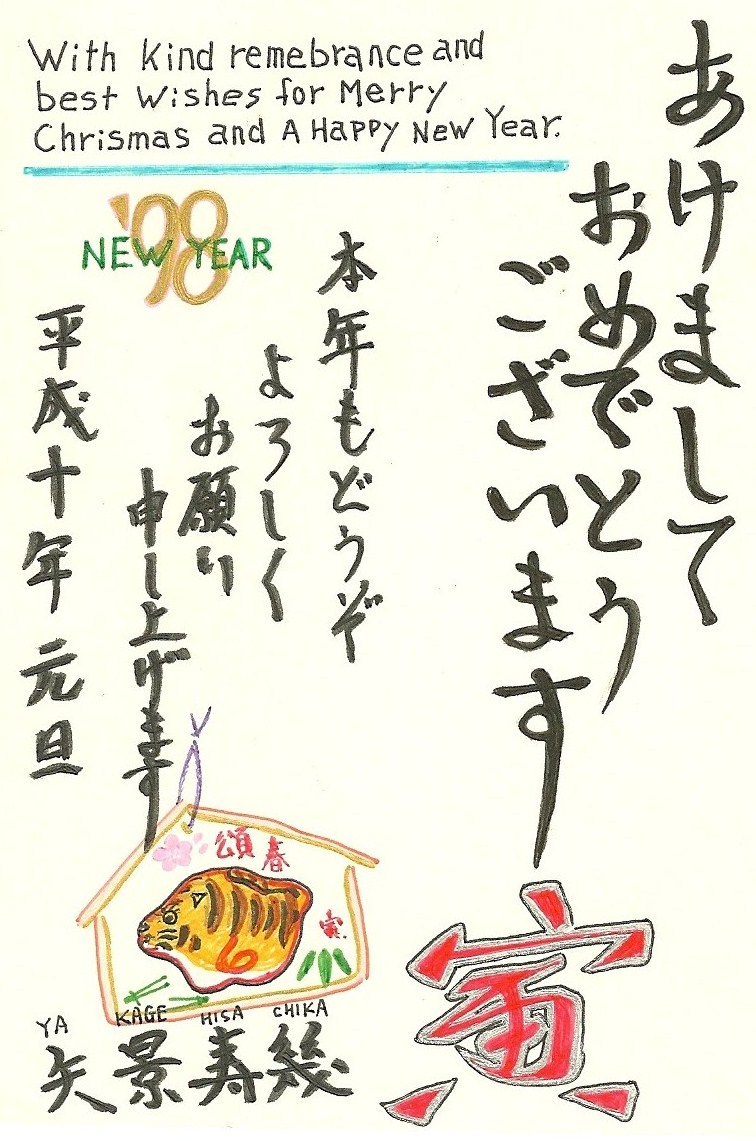 With kind remebrance and
best wishes for Merry
Chrismas and A Happy New Year.
あけまして
おめでとう
ございます
'98
NEW YEAR
本年もどうぞ
よろしく
お願い
申し上げます
平成十年 元旦
頌春
寅
寅
YA KAGE HISA CHIKA
矢景寿幾